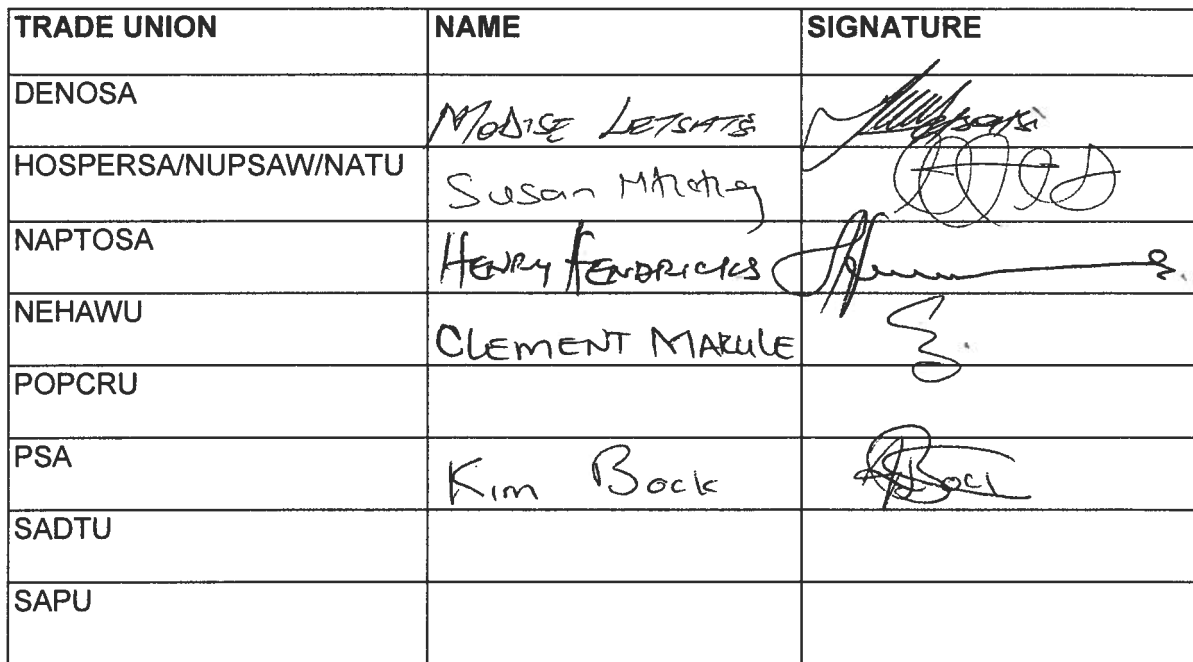 TRADE UNION NAME SIGNATURE
DENOSA MODISE LETSATSI
HOSPERSA/NUPSAW/NATU Susan
NAPTOSA HENRY HENDRICKS
NEHAWU CLEMENT MARULE
POPCRU
PSA Kim Bock
SADTU
SAPU